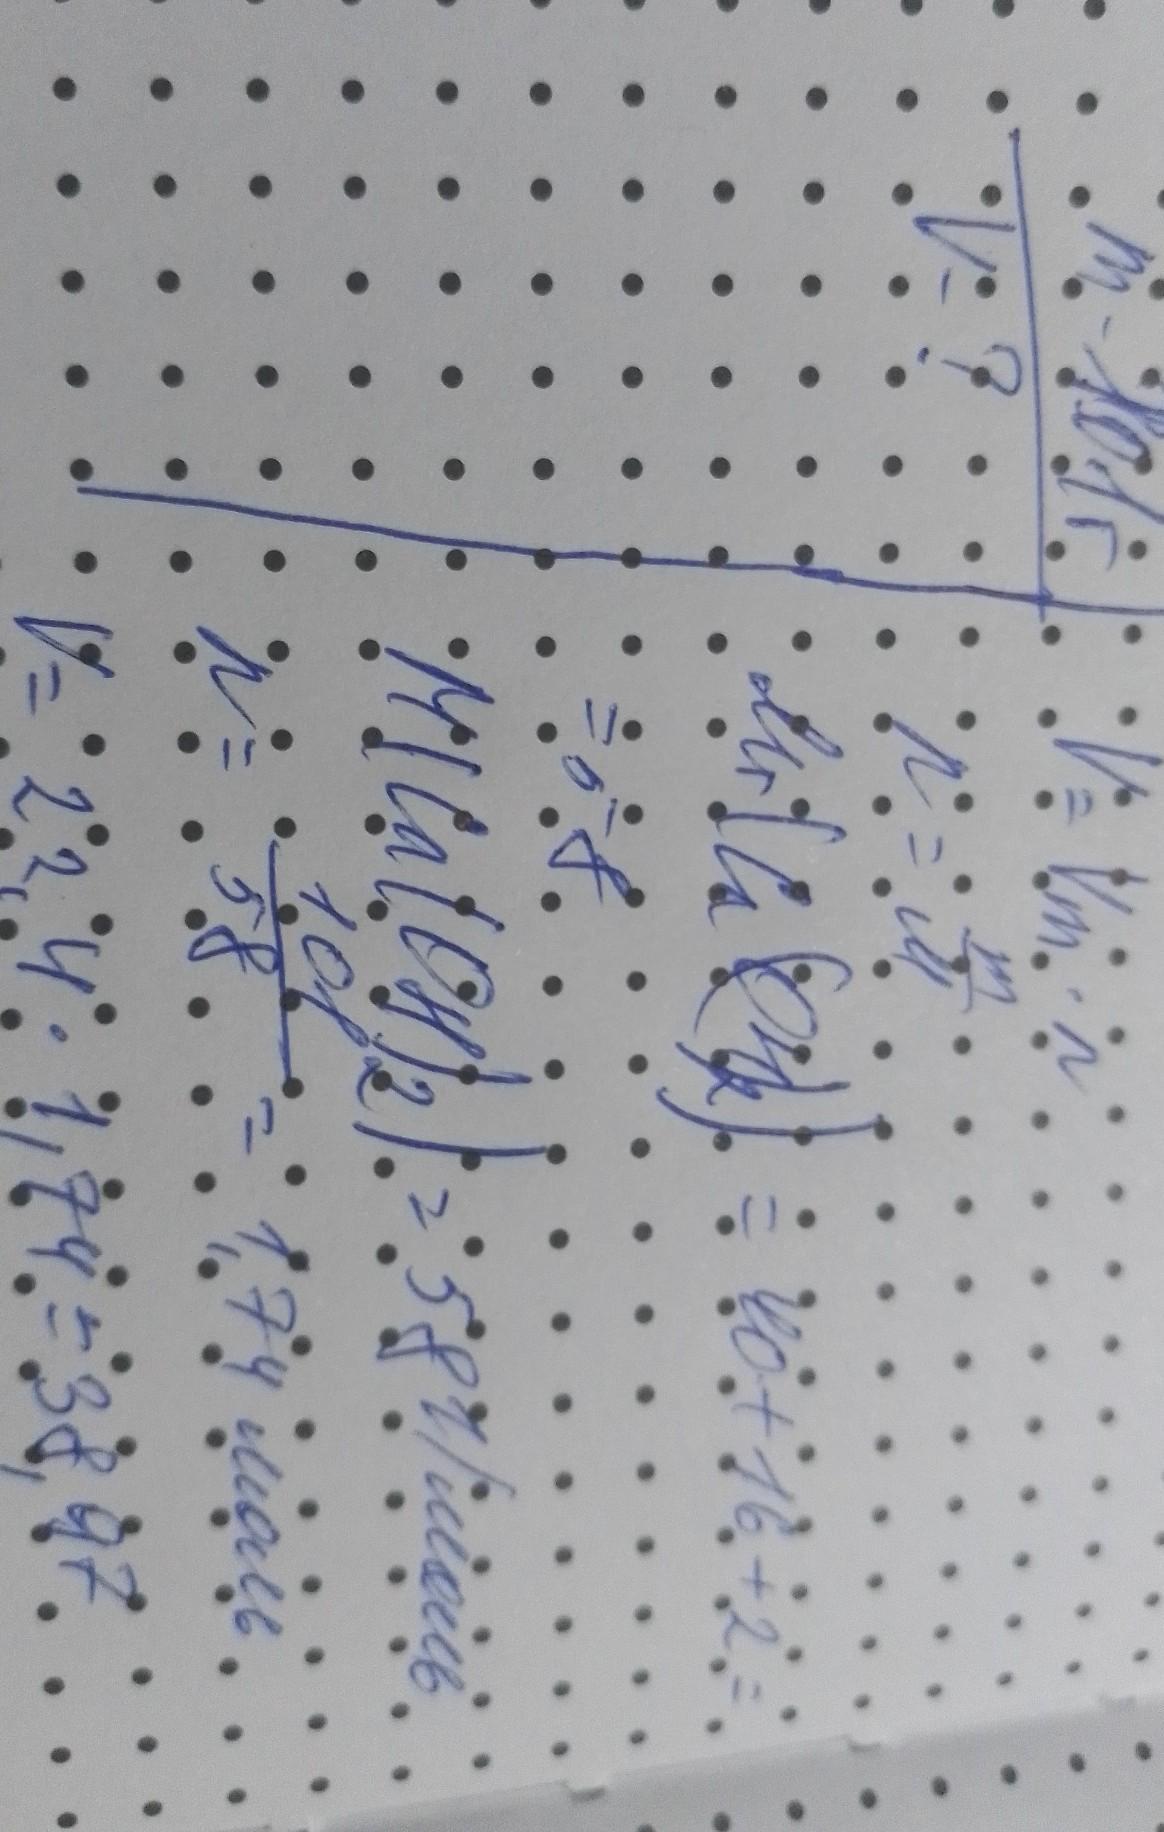 m - 101г
V - ?
V = Vm · n
n = m/M
Mr(Ca(OH)2) = 40 + 16 + 2 =
= 58
M(Ca(OH)2) = 58 г/моль
n = 101/58 = 1,74 моль
V = 22,4 · 1,74 = 38,97